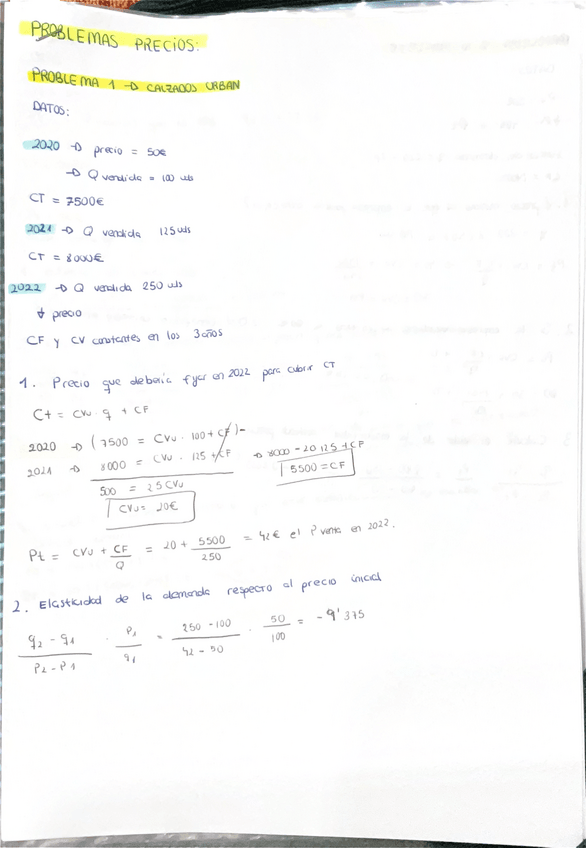 PROBLEMAS PRECIOS:
PROBLEMA 1 → CALZADOS URBAN
DATOS:
2020 → precio = 50€
→ Q vendida = 100 uds
CT = 7500€
2021 → Q vendida 125 uds
CT = 8000€
2022 → Q vendida 250 uds
↓ precio
CF y CV constantes en los 3 años
1. Precio que debería fijar en 2022 para cubrir CT
Ct = CVu · q + CF
2020 → (7500 = CVu · 100 + CF) -
2021 → 8000 = CVu · 125 + CF → 8000 = 20·125 + CF
500 = 25 CVu 5500 = CF
CVu = 20€
Pt = CVu + CF/Q = 20 + 5500/250 = 42€ el P venta en 2022.
2. Elasticidad de la demanda respecto al precio inicial
q2 - q1 / P2 - P1 · P1 / q1 = 250 - 100 / 42 - 50 · 50 / 100 = -9'375